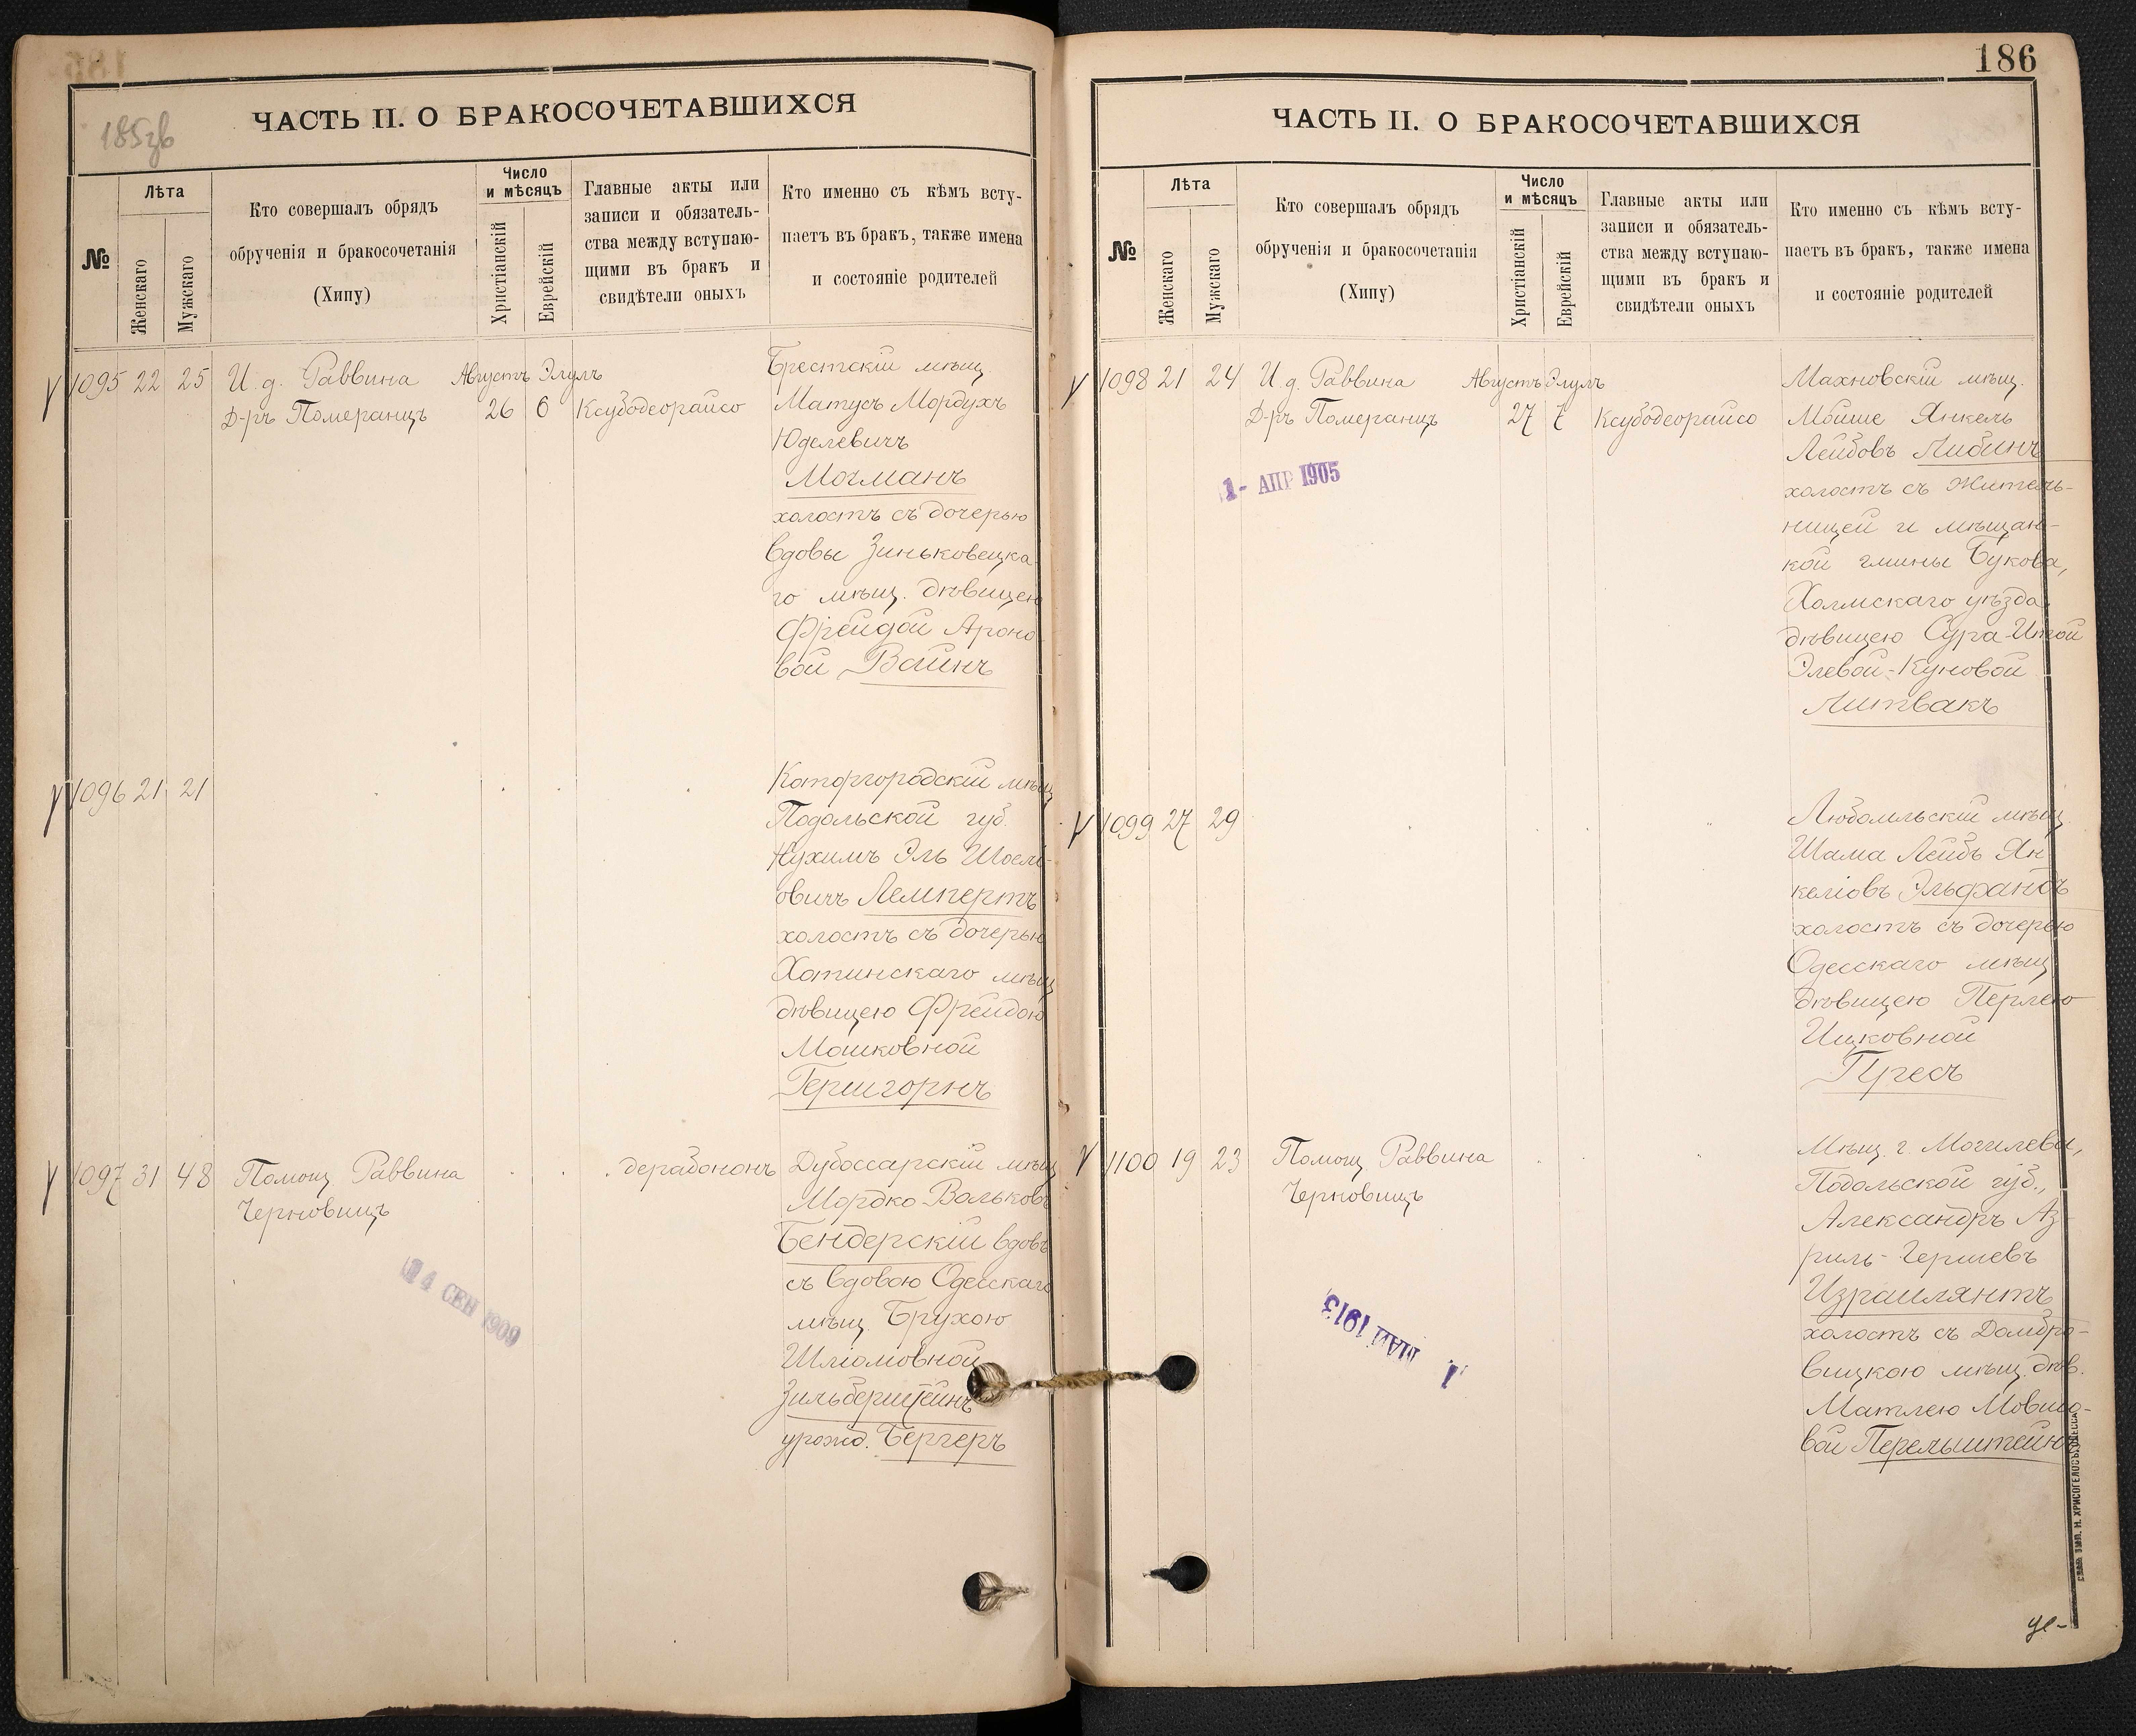 185об
ЧАСТЬ II. О БРАКОСОЧЕТАВШИХСЯ
№
Лѣта
Женскаго
Мужскаго
Кто совершалъ обрядъ
обрученія и бракосочетанія
(Хипу)
Число
и мѣсяцъ
Христіанскій
Еврейскій
Главные акты или
записи и обязатель-
ства между вступаю-
щими въ бракъ и
свидѣтели оныхъ
Кто именно съ кѣмъ всту-
паетъ въ бракъ, также имена
и состояніе родителей
1095 22 25 И. д. Раввина Августъ Элулъ
Д-ръ Померанцъ 26 6 Ксубодеорайсо
Брестскій мѣщ
Матусъ Мордухъ
Юделевичъ
Могманъ
холостъ съ дочерью
вдовы Зиньковецка
го мѣщ. дѣвицею
Фрейдой Ароно
вой Вайнъ
1096 21 21
Каторгородскій мѣщ
Подольской губ.
Нухимъ Эль Шоел-
овичъ Лемпертъ
холостъ съ дочерью
Хотинскаго мѣщ
дѣвицею Фрейдою
Мошковной
Гершгорнъ
1097 31 48 Помощ Раввина
Черновицъ
дерабононъ
Дубоссарскій мѣщ
Мордко-Вольковъ
Бендерскій вдовъ
съ вдовою Одесскаго
мѣщ. Брухою
Шліомовной
Зильберштейнъ
урожд. Бергеръ
14 СЕН 1909
186
ЧАСТЬ II. О БРАКОСОЧЕТАВШИХСЯ
№
Лѣта
Женскаго
Мужскаго
Кто совершалъ обрядъ
обрученія и бракосочетанія
(Хипу)
Число
и мѣсяцъ
Христіанскій
Еврейскій
Главные акты или
записи и обязатель-
ства между вступаю-
щими въ бракъ и
свидѣтели оныхъ
Кто именно съ кѣмъ всту-
паетъ въ бракъ, также имена
и состояніе родителей
1098 21 24 И. д. Раввина Августъ Элулъ
Д-ръ Померанцъ 27 7 Ксубодеорайсо
1- АПР 1905
Махновскій мѣщ.
Мойше Янкель
Лейбовъ Либинъ
холостъ съ жител-
ницей и мѣщан-
кой гмины Букова,
Холмскаго уѣзда
дѣвицею Сура-Итой
Элевой-Куновой
Литвакъ
1099 27 29
Любомльскій мѣщ.
Шама Лейбъ Ян
келіовъ Эльфандъ
холостъ съ дочерью
Одесскаго мѣщ
дѣвицею Перлею
Ицковной
Пресъ
1100 19 23 Помощ Раввина
Черновицъ
1. МАЙ 1913
Мѣщ. г. Могилева,
Подольской губ.,
Александръ Аз-
риль-Гершевъ
Израилянтъ
холостъ съ Домбро-
вицкою мѣщ. дѣв.
Матлею Мовшо-
вой Перельштейнъ